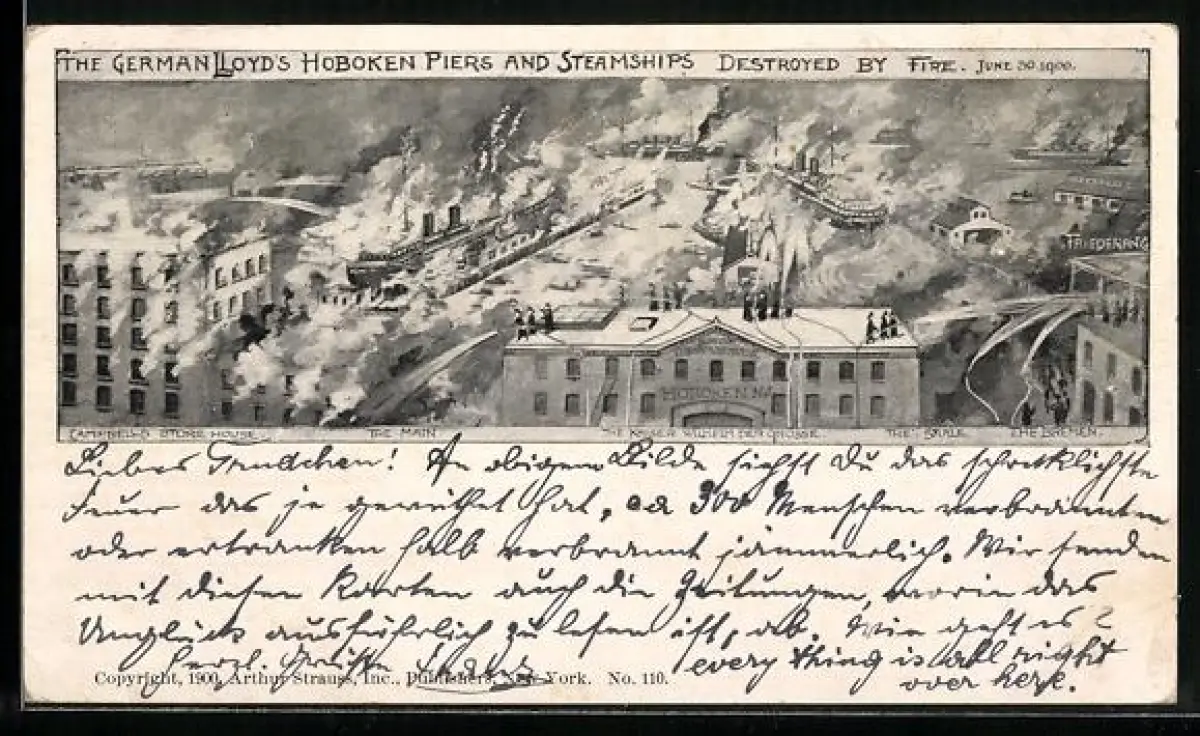 THE GERMAN LLOYD'S HOBOKEN PIERS AND STEAMSHIPS DESTROYED BY FIRE. JUNE 30 1900.
FRIEDERANG
HOBOKEN N.J.
CAMPBELL'S STORE HOUSE. THE MAIN THE KAISER WILHELM DER GROSSE. THE SAALE THE BREMEN.
Liebes Trudchen! An obigem Bilde siehst Du das schrecklichste
Feuer das je gewüthet hat, ca 300 Menschen verbrannten
oder ertranken halb verbrannt jämmerlich. Wir senden
mit diesen Karten auch die Zeitungen, worin das
Unglück ausführlich zu lesen ist, ab. Wie geht es?
herzl. Grüsse every thing is all right
over here.
Copyright, 1900, Arthur Strauss, Inc., Publishers, New York. No. 110.